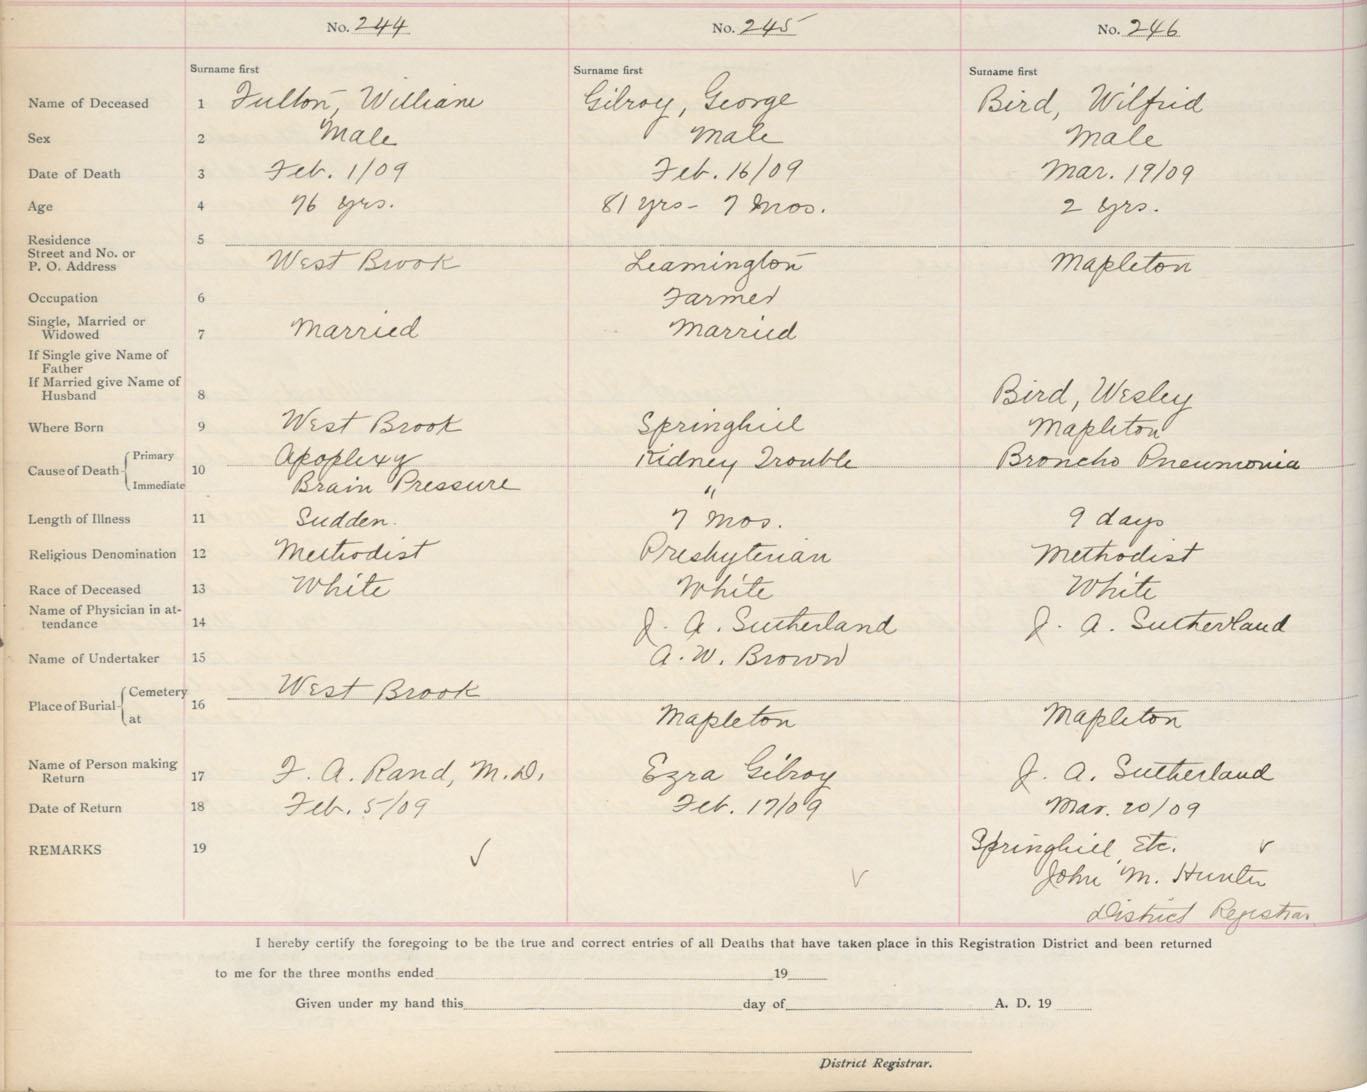 No. 244 No. 245 No. 246
Surname first Surname first Surname first
Name of Deceased 1 Fulton, William Gilroy, George Bird, Wilfrid
Sex 2 Male Male Male
Date of Death 3 Feb. 1/09 Feb. 16/09 Mar. 19/09
Age 4 76 yrs. 81 yrs - 7 mos. 2 yrs.
Residence 5
Street and No. or
P. O. Address West Brook Leamington Mapleton
Occupation 6 Farmer
Single, Married or
Widowed 7 Married Married
If Single give Name of
Father
If Married give Name of
Husband 8 Bird, Wesley
Where Born 9 West Brook Springhill Mapleton
Cause of Death Primary 10 Apoplexy Kidney Trouble Broncho Pneumonia
Immediate Brain Pressure "
Length of Illness 11 Sudden. 7 mos. 9 days
Religious Denomination 12 Methodist Presbyterian Methodist
Race of Deceased 13 White White White
Name of Physician in at-
tendance 14 J. A. Sutherland J. A. Sutherland
Name of Undertaker 15 A. W. Brown
Place of Burial Cemetery 16 West Brook
at Mapleton Mapleton
Name of Person making
Return 17 F. A. Rand, M.D. Ezra Gilroy J. A. Sutherland
Date of Return 18 Feb. 5/09 Feb. 17/09 Mar. 20/09
REMARKS 19 ✓ ✓ Springhill Etc. ✓
John M. Hunter
District Registrar
I hereby certify the foregoing to be the true and correct entries of all Deaths that have taken place in this Registration District and been returned
to me for the three months ended 19
Given under my hand this day of A. D. 19
District Registrar.